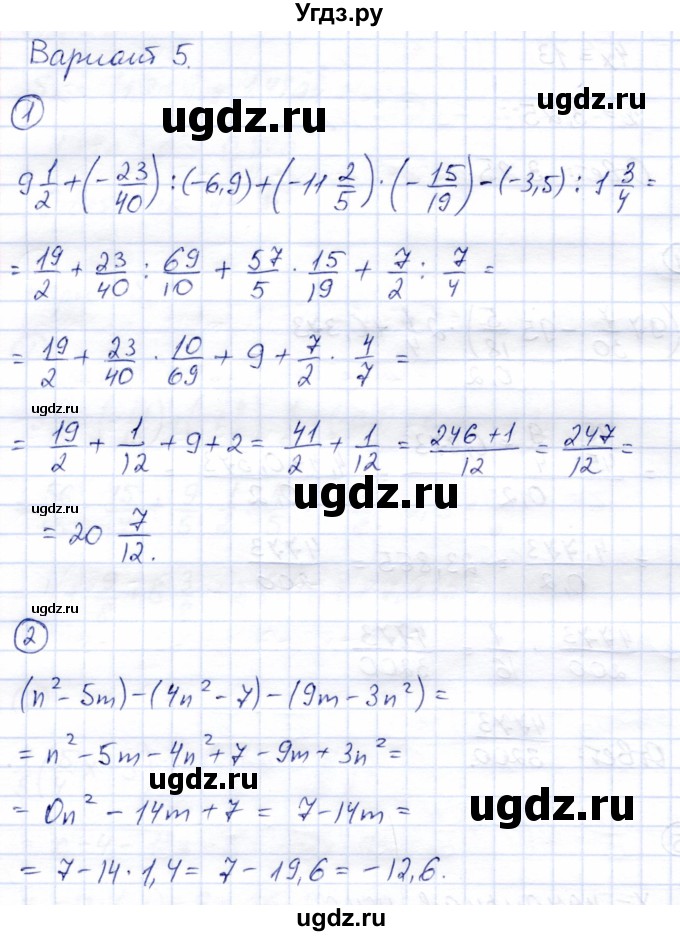 Угдз.ру
Вариант 5.
1
ugdz.ru ugdz.ru
9 1/2 + (-23/40) : (-6,9) + (-11 2/5) · (-15/19) - (-3,5) : 1 3/4 =
= 19/2 + 23/40 : 69/10 + 57/5 · 15/19 + 7/2 : 7/4 =
= 19/2 + 23/40 · 10/69 + 9 + 7/2 · 4/7 =
ugdz.ru
= 19/2 + 1/12 + 9 + 2 = 41/2 + 1/12 = 246+1/12 = 247/12 =
ugdz.ru
= 20 7/12.
ugdz.ru
2
(n² - 5m) - (4n² - 7) - (9m - 3n²) =
= n² - 5m - 4n² + 7 - 9m + 3n² =
ugdz.ru ugdz.ru
= 0n² - 14m + 7 = 7 - 14m =
= 7 - 14 · 1,4 = 7 - 19,6 = -12,6.
ugdz.ru